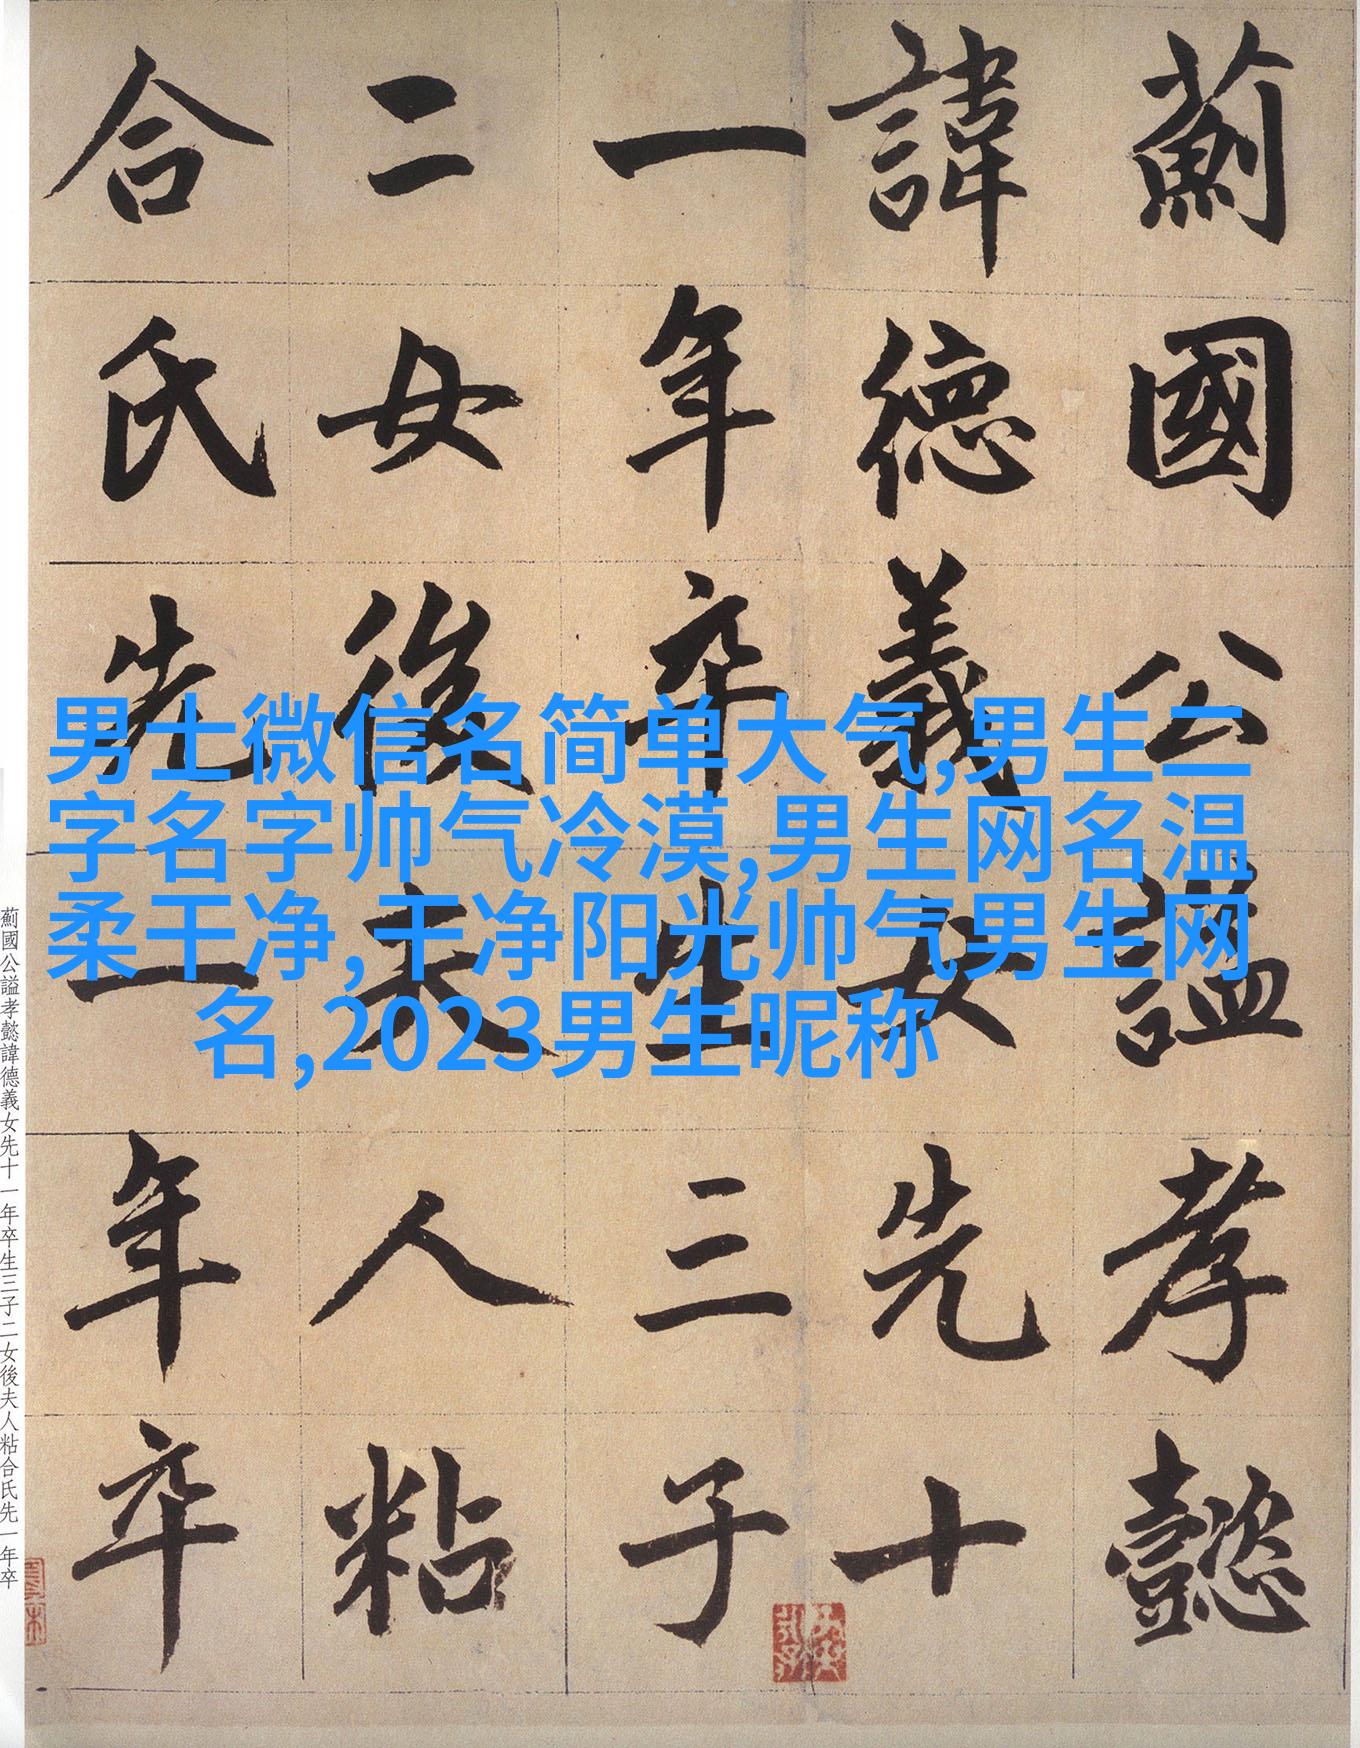 薊國公謚孝懿
諱德義女先十
一年卒生三子
二女後夫人粘
合氏先一年卒
男士微信名简单大气,男生二
字名字帅气冷漠,男生网名温
柔干净,干净阳光帅气男生网
名,2023男生昵称
薊國公謚孝懿諱德義女先十一年卒生三子二女後夫人粘合氏先一年卒